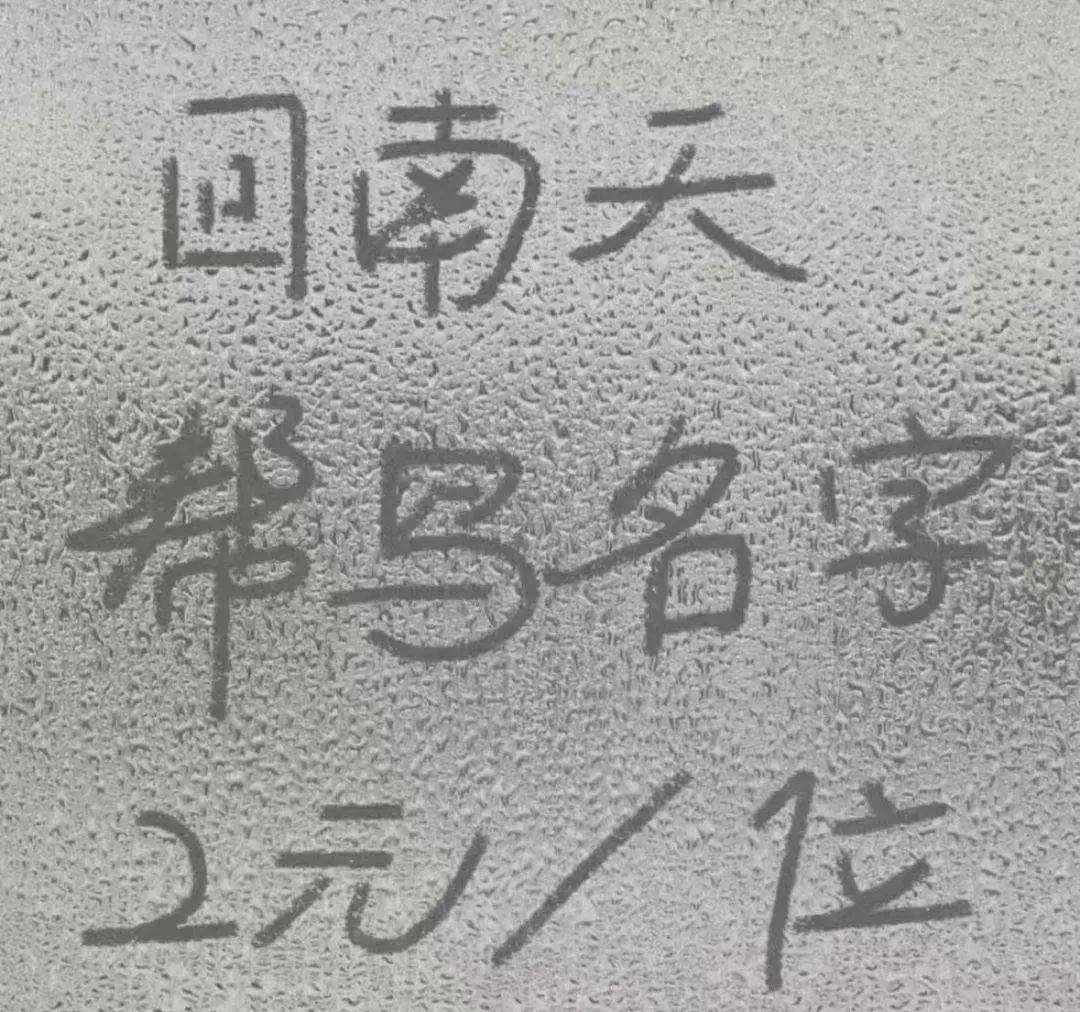 回南天
帮写名字
2元/位